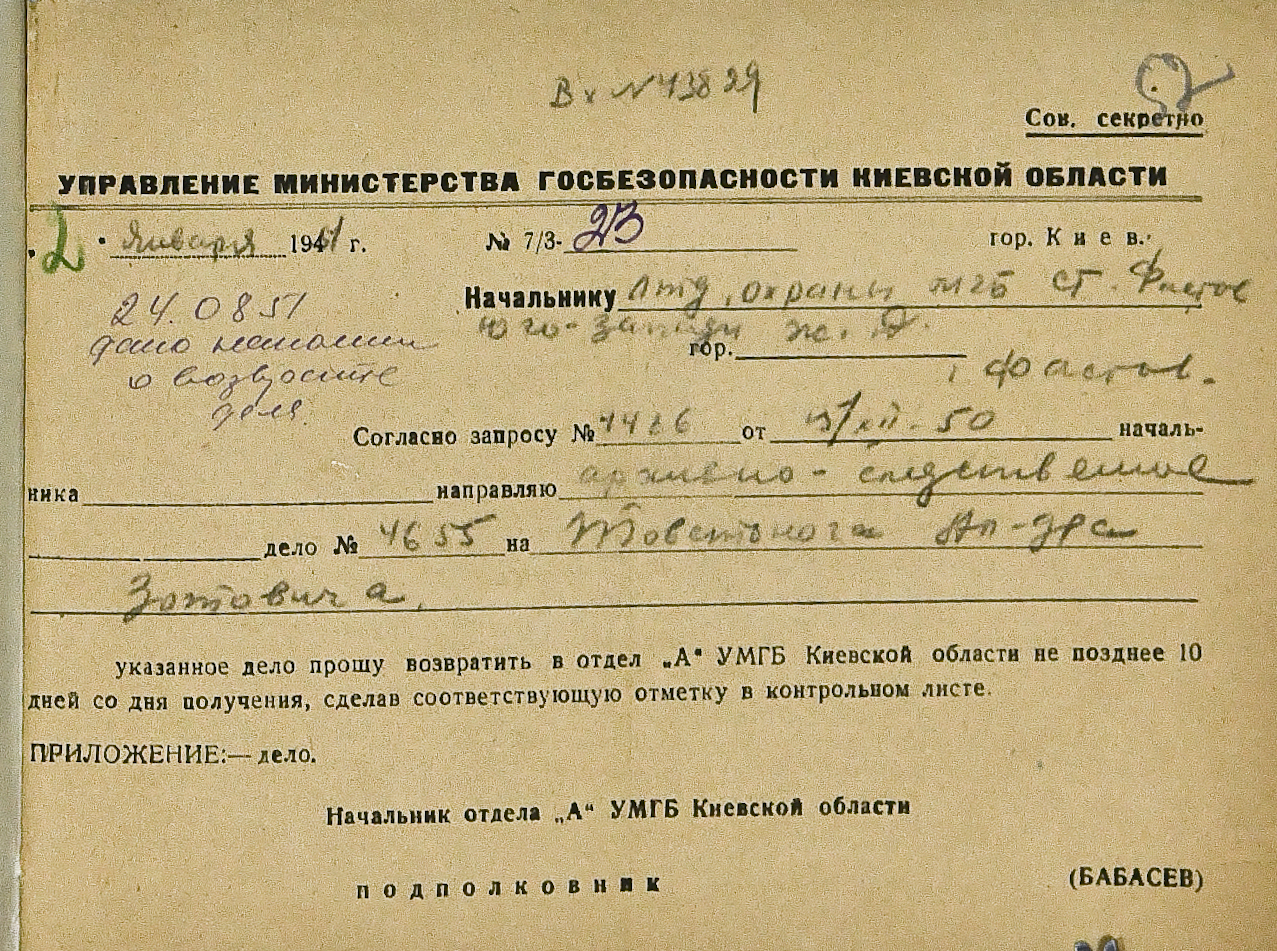 Вх №43829
Сов. секретно
УПРАВЛЕНИЕ МИНИСТЕРСТВА ГОСБЕЗОПАСНОСТИ КИЕВСКОЙ ОБЛАСТИ
"2" января 1951 г. № 7/3-23 гор. Киев.
Начальнику охраны МГБ ст. Фастов
Юго-Запад ж. д.
гор.
Фастов.
24.0851
дано
о возврате
дела
Согласно запросу № от XII-50 началь-
ника направляю архивно-следственное
дело № 4655 на Товстонога Ал-дра
Зотовича.
указанное дело прошу возвратить в отдел „А" УМГБ Киевской области не позднее 10
дней со дня получения, сделав соответствующую отметку в контрольном листе.
ПРИЛОЖЕНИЕ:— дело.
Начальник отдела „А" УМГБ Киевской области
подполковник (БАБАСЕВ)